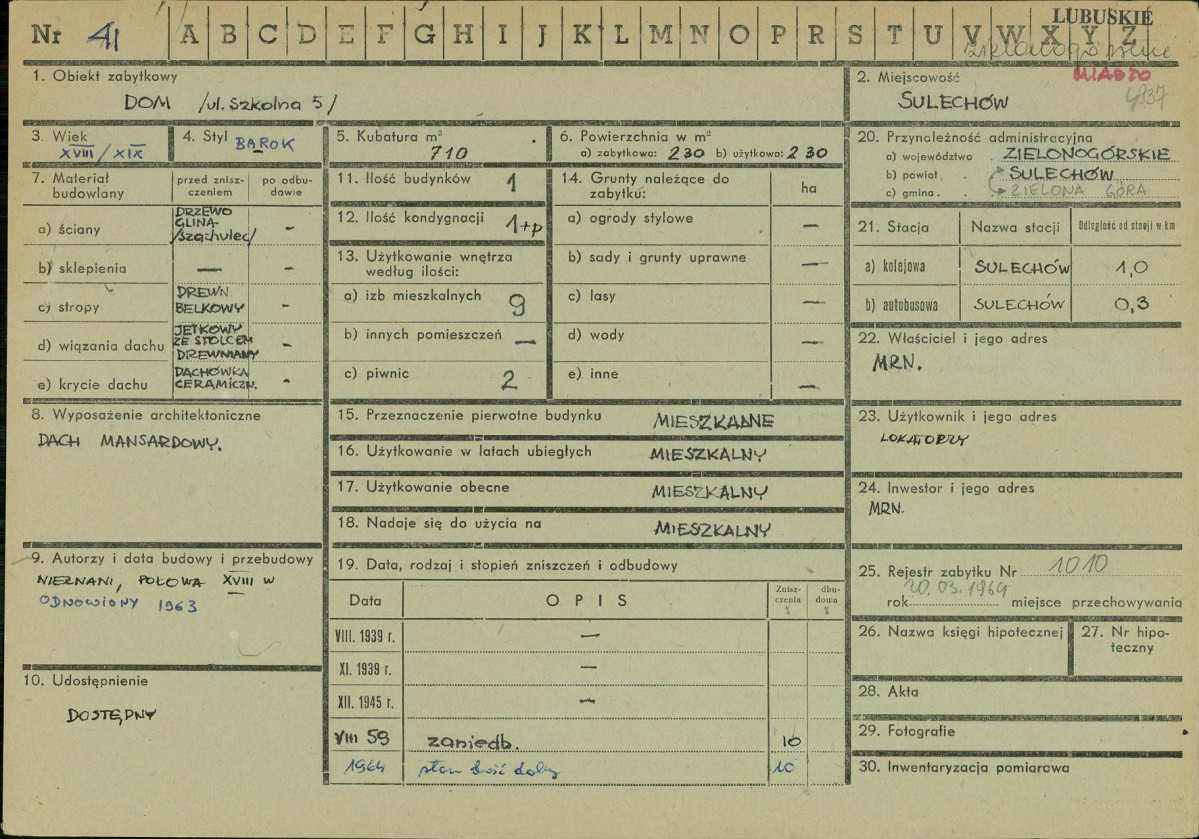 Nr 41 A B C D E F G H I J K L M N O P R S T U V W X Y Z LUBUSKIE
zielonogórskie
1. Obiekt zabytkowy
DOM /ul. Szkolna 5/
2. Miejscowość MIASTO
SULECHÓW 4937
3. Wiek
XVIII/XIX
4. Styl BAROK
5. Kubatura m³
710
6. Powierzchnia w m²
a) zabytkowa: 230 b) użytkowa: 230
7. Materiał budowlany
przed znisz-
czeniem
po odbu-
dowie
a) ściany DRZEWO GLINA /szachulec/ -
b) sklepienia — -
c) stropy DREWN. BELKOWY -
d) wiązania dachu JĘTKOWY ZE STOLCEM DREWNIANY -
e) krycie dachu DACHÓWKA CERAMICZN. -
8. Wyposażenie architektoniczne
DACH MANSARDOWY.
9. Autorzy i data budowy i przebudowy
NIEZNANI, POŁOWA XVIII W
ODNOWIONY 1963
10. Udostępnienie
DOSTĘPNY
11. Ilość budynków 1
12. Ilość kondygnacji 1+p
13. Użytkowanie wnętrza
według ilości:
a) izb mieszkalnych 9
b) innych pomieszczeń —
c) piwnic 2
14. Grunty należące do
zabytku: ha
a) ogrody stylowe —
b) sady i grunty uprawne —
c) lasy —
d) wody —
e) inne —
15. Przeznaczenie pierwotne budynku MIESZKALNE
16. Użytkowanie w latach ubiegłych MIESZKALNY
17. Użytkowanie obecne MIESZKALNY
18. Nadaje się do użycia na MIESZKALNY
19. Data, rodzaj i stopień zniszczeń i odbudowy
Data OPIS Znisz-
czenia
%
dbu-
dowa
%
VIII. 1939 r. —
XI. 1939 r. —
XII. 1945 r. —
VIII 59 zaniedb. 10
1964 stan dość dobry 10
20. Przynależność administracyjna
a) województwo . ZIELONOGÓRSKIE
b) powiat . SULECHÓW
c) gmina . ZIELONA GÓRA
21. Stacja Nazwa stacji Odległość od stacji w km
a) kolejowa SULECHÓW 1,0
b) autobusowa SULECHÓW 0,3
22. Właściciel i jego adres
MRN.
23. Użytkownik i jego adres
LOKATORZY
24. Inwestor i jego adres
MRN.
25. Rejestr zabytku Nr 1010
rok 20.03.1964 miejsce przechowywania
26. Nazwa księgi hipotecznej
27. Nr hipo-
teczny
28. Akta
29. Fotografie
30. Inwentaryzacja pomiarowa